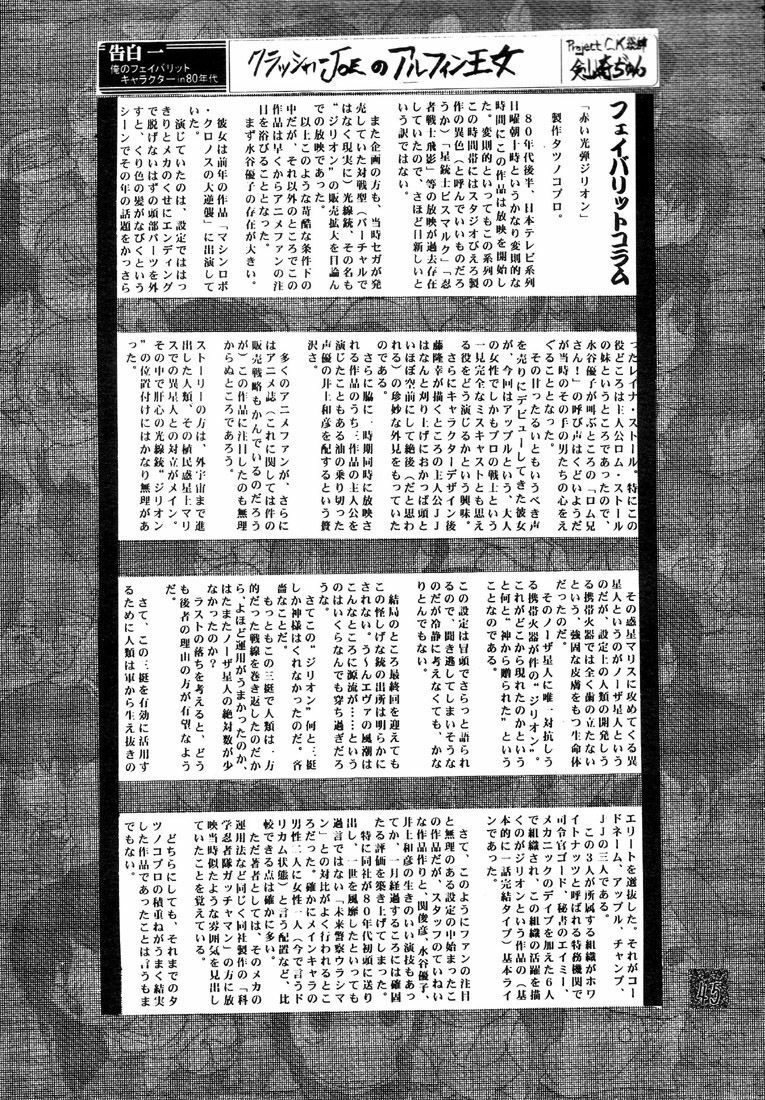 告白一
俺のフェイバリット
キャラクターin80年代
クラッシャーJOEのアルフィン王女
Project C.K.
フェイバリットコラム
「赤い光弾ジリオン」
製作タツノコプロ。
８０年代後半、日本テレビ系列
日曜朝十時というかなり変則的な
時間にこの作品は放映を開始し
た。変則的といってもこの系列の
この時間帯にはスタジオぴえろ製
作の異色（と呼んでいいものだろ
うか）「星銃士ビスマルク」「忍
者戦士飛影」等の放映が過去存在
していたので、さほど目新しいと
いう訳ではない。
また企画の方も、当時セガが発
売していた対戦型（バーチャルで
はなく現実に）光線銃、その名も
“ジリオン”の販売拡大を目論ん
での放映であった。
以上このような苛酷な条件下の
中だが、それ以外のところでこの
作品は早くからアニメファンの注
目を浴びることとなった。
まず水谷優子の存在が大きい。
彼女は前年の作品「マシンロボ
・クロノスの大逆襲」に出演して
いた。
演じていたのは、設定でははっ
きりとメカのくせにエンディング
で脱げないはずの頭部パーツを外
すと、くり色の髪がなびくという
シーンでその年の話題をかっさら
ったレイナ・ストール。特にこの
役どころは主人公ロム・ストール
の妹というところであったので、
水谷優子が叫ぶところの「ロム兄
さん！」の呼び声はくどいようだ
が当時のその手の男たちの心をえ
ぐることとなった。
その甘ったるいともいうべき声
を売りにデビューしてきた彼女
が、今回はアップルという、大人
の女性でしかもプロの戦士という
一見完全なミスキャストとも思え
る役をどう演じるかという興味。
さらにキャラクターデザイン後
藤隆幸が描くところの主人公ＪＪ
はなんと刈り上げにおかっぱ頭と
いうほぼ空前にして絶後（だと思わ
れる）の珍妙な外見をもっていた
のである。
さらに脇に一時期同時に放映さ
れる作品のうち三作品の主人公を
演じたこともある油の乗り切った
声優の井上和彦を配するという贅
沢さ。
多くのアニメファンが、さらに
はアニメ誌（これに関しては件の
販売戦略もかんでいるのだろう
が）この作品に注目したのも無理
からぬところであろう。
ストーリーの方は、外宇宙まで進
出した人類、その植民惑星上マリ
スでの異星人との対立がメイン。
その中で肝心の光線銃“ジリオン
”の位置付けにはかなり無理があ
った。
その惑星マリスに攻めてくる異
星人というのがノーザ星人という
のだが、設定上の人類の開発しう
る携帯火器では全く歯の立たない
という、強固な皮膚をもつ生命体
だったのだ。
そのノーザ星人に唯一対抗しう
る携帯火器が件の“ジリオン”。
これがどこから現れたのかという
と何と“神から贈られた”という
ことなのである。
この設定は冒頭でさらっと語られ
るので、聞き逃してしまいそうな
のだが冷静に考えなくても、かな
りとんでもない。
結局のところ最終回を迎えても
この怪しげな銃の出所は明らかに
されない。う～んエヴァの風潮は
こんなところに源流が……という
のはいくらなんでも穿ち過ぎだろ
うな。
さてこの“ジリオン”何と三挺
しか神様はくれなかったのだ。吝
嗇なことだ。
もっともこの三挺で人類は一方
的だった戦線を巻き返したのだか
ら、よほど運用がうまかったのか、
はたまたノーザ星人の絶対数が少
なかったのか？
ラストの落ちを考えると、どう
も後者の理由の方が有望なよう
だ。
さて、この三挺を有効に活用す
るために人類は軍から生え抜きの
エリートを選抜した。それがコー
ドネーム、アップル、チャンプ、
ＪＪの三人である。
この３人が所属する組織がホワ
イトナッツと呼ばれる特務機関で
司令官ゴード、秘書のエイミー、
メカニックのデイブを加えた６人
で組織され、この組織の活躍を描
くのがジリオンという作品の（基
本的に一話完結タイプ）基本ライ
ンであった。
さて、このようにファンの注目
と無理のある設定の中始まったこ
の作品だが、スタッフのていねい
な作品作りと、関俊彦、水谷優子、
井上和彦の生きのいい演技もあっ
てか、一月経過するころには確固
たる評価を築き上げてしまった。
特に同社が８０年代初頭に送り
出し、一世を風靡したといっても
過言ではない「未来警察ウラシマ
ン」との対比がよく行われるとこ
ろだった。確かにメインキャラの
男性二人に女性一人（今で言うド
リカム状態）と言う配置など、比
較できる点は確かに多い。
ただ著者としては、そのメカの
運用法など同じく同社製作の「科
学忍者隊ガッチャマン」の方に放
映当時似たような雰囲気を見出し
ていたことを覚えている。
どちらにしても、それまでのタ
ツノコプロの積重ねがうまく結実
した作品であったことは言うもま
でもない。
15